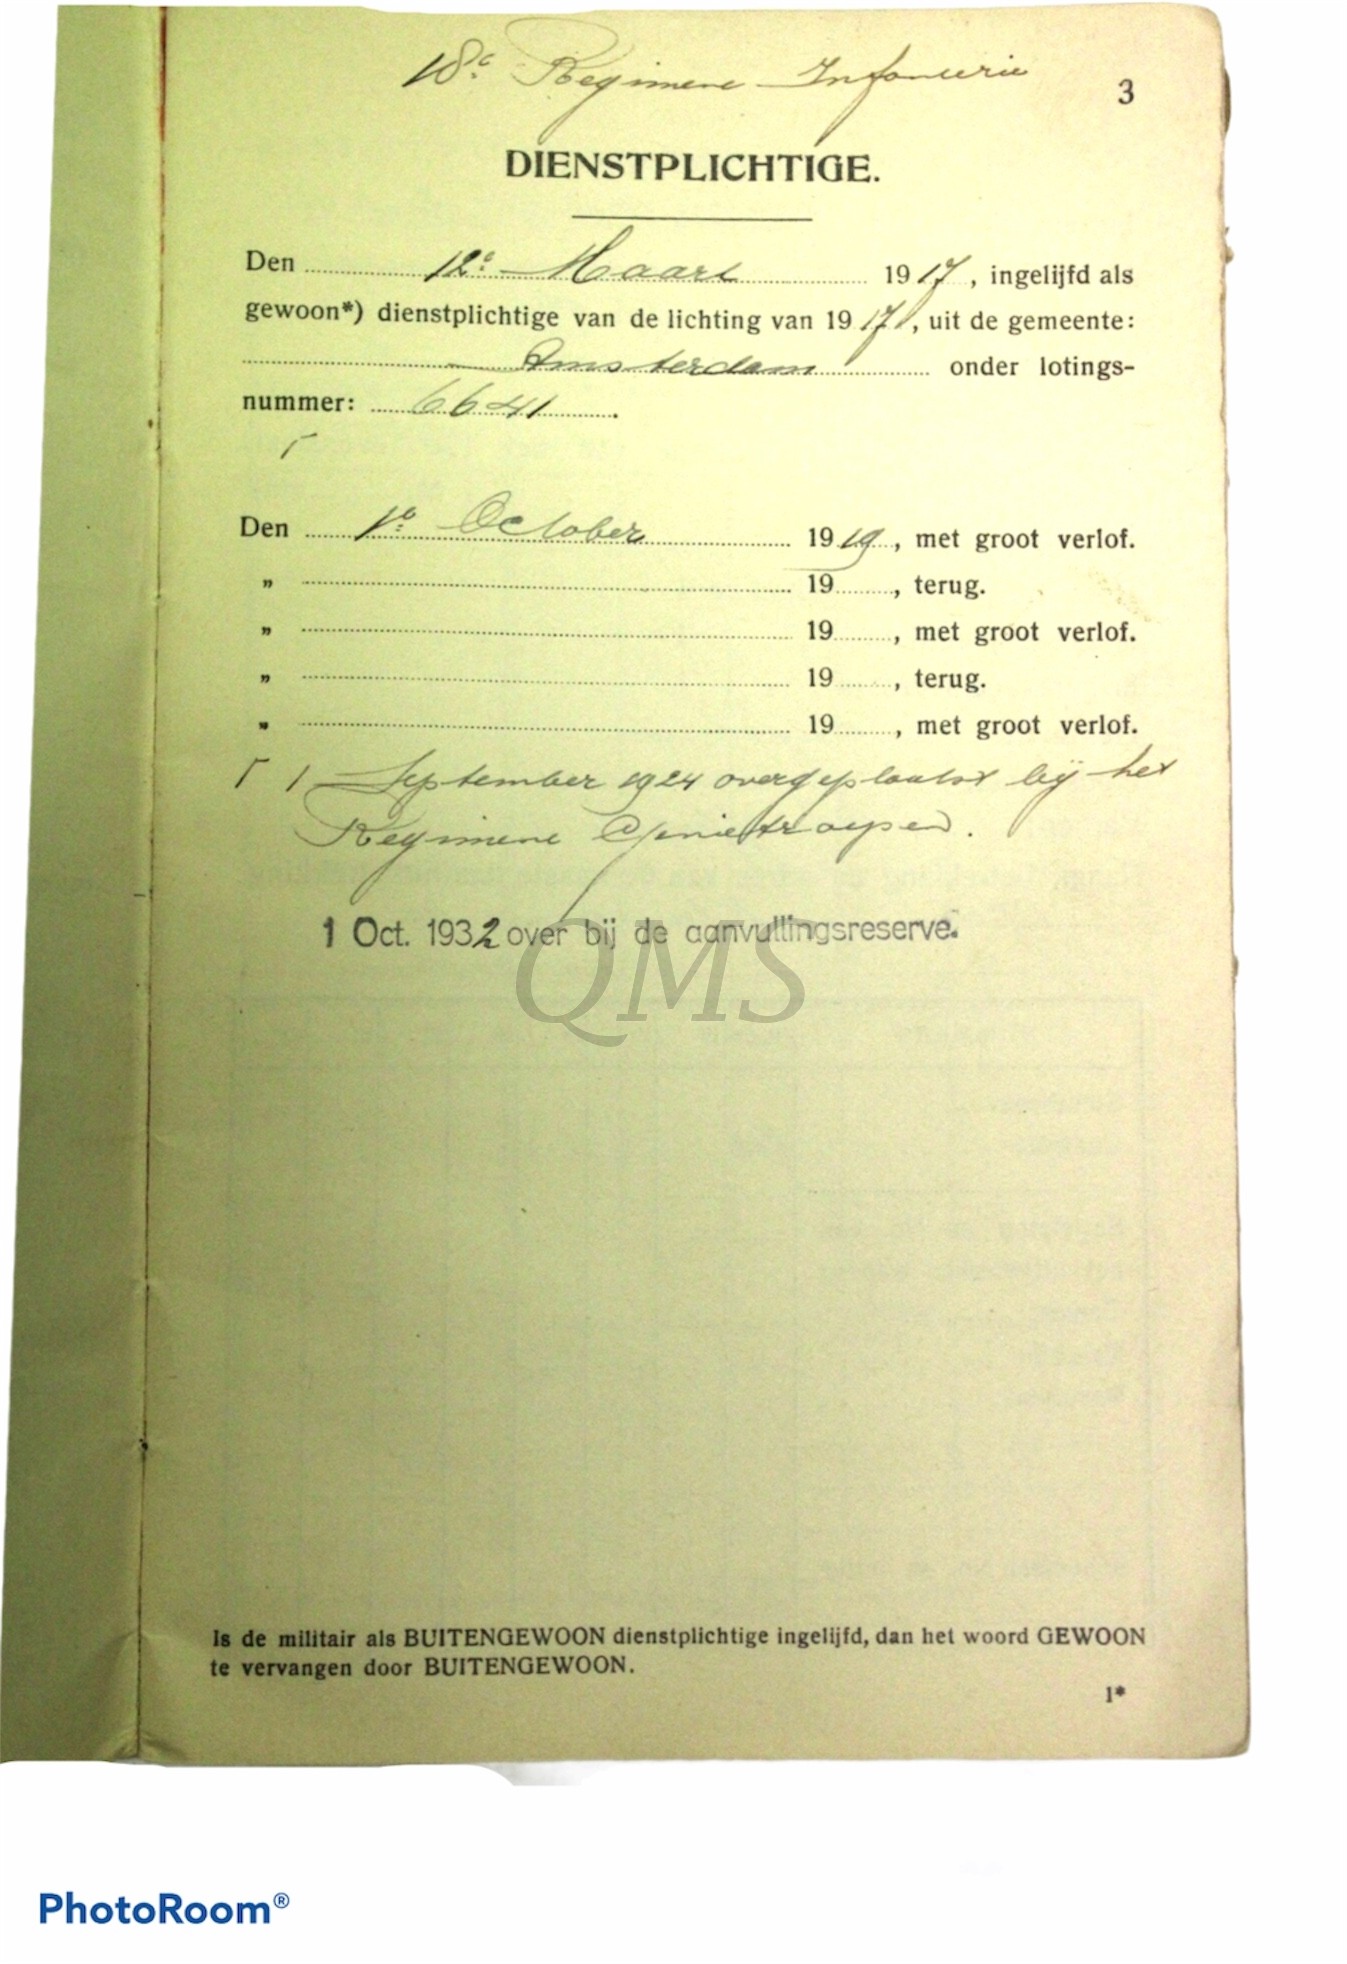 18e Regiment Infanterie
3
DIENSTPLICHTIGE.
Den 12e Maart 1917, ingelijfd als
gewoon*) dienstplichtige van de lichting van 1917, uit de gemeente:
Amsterdam onder lotings-
nummer: 6641.
Den 1e October 1919, met groot verlof.
„ 19, terug.
„ 19, met groot verlof.
„ 19, terug.
„ 19, met groot verlof.
1 September 1924 overgeplaatst bij het
Regiment Genietroepen.
1 Oct. 1932 over bij de aanvullingsreserve.
QMS
Is de militair als BUITENGEWOON dienstplichtige ingelijfd, dan het woord GEWOON
te vervangen door BUITENGEWOON.
1*
PhotoRoom®